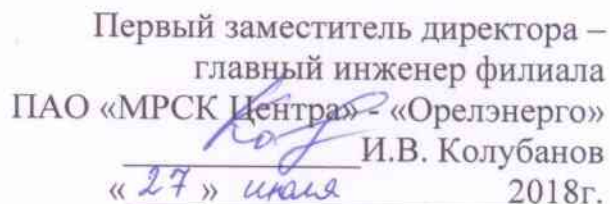 Первый заместитель директора –
главный инженер филиала
ПАО «МРСК Центра» - «Орелэнерго»
И.В. Колубанов
« 27 » июля 2018г.